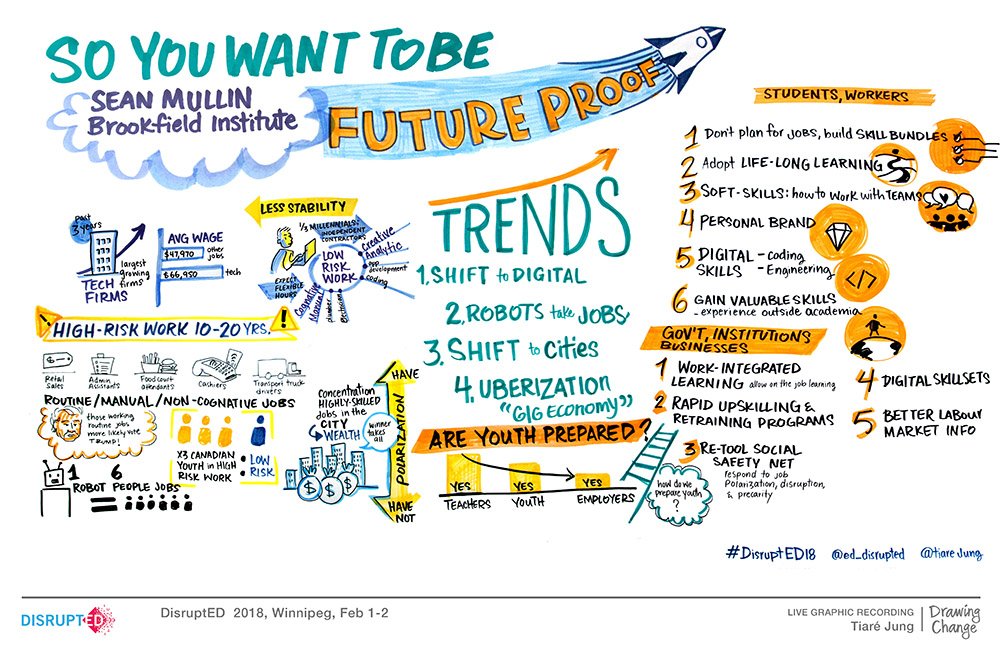 SO YOU WANT TO BE
FUTURE PROOF
SEAN MULLIN
Brookfield Institute
past
3 years
largest
growing
firms
TECH
FIRMS
AVG WAGE
$47,970 other
jobs
$66,950 tech
LESS STABILITY
1/3 MILLENNIALS:
INDEPENDENT
CONTRACTORS
LOW
RISK
WORK
EXPECT
FLEXIBLE
HOURS
Creative
Analytic
app
development
coding
Cognitive
Manual
plumber
electrician
HIGH-RISK WORK 10-20 YRS.
!
!
Retail
Sales
Admin
Assistants
Foodcourt
attendants
Cashiers
Transport truck
drivers
ROUTINE/MANUAL/NON-COGNATIVE JOBS
those working
routine jobs
more likely vote
TRUMP!
X3 CANADIAN
YOUTH in HIGH
RISK WORK
LOW
RISK
1 6
ROBOT PEOPLE JOBS
=
Concentration
HIGHLY-SKILLED
Jobs in the
CITY
WEALTH
winner
takes
all
$ $ $
HAVE
POLARIZATION
HAVE
NOT
TRENDS
1. SHIFT to DIGITAL
2. ROBOTS take JOBS
3. SHIFT to Cities
4. UBERIZATION
"GIG ECONOMY"
ARE YOUTH PREPARED?
YES
YES
YES
TEACHERS YOUTH EMPLOYERS
how do we
prepare youth
?
STUDENTS, WORKERS
1 Don't plan for JOBS, build SKILL BUNDLES
2 Adopt LIFE-LONG LEARNING
3 SOFT-SKILLS: how to Work with TEAMS
4 PERSONAL BRAND
5 DIGITAL - coding
SKILLS - Engineering
</>
6 GAIN VALUABLE SKILLS
- experience outside academia
GOV'T, INSTITUTIONS
BUSINESSES
1 WORK-INTEGRATED
LEARNING allow on the job learning
2 RAPID UPSKILLING &
RETRAINING PROGRAMS
3 RE-TOOL SOCIAL
SAFETY NET
respond to job
Polarization, disruption,
& precarity
4 DIGITAL SKILLSETS
5 BETTER LABOUR
MARKET INFO
#DisruptED18 @ed_disrupted @tiare Jung
DISRUPTED
DisruptED 2018, Winnipeg, Feb 1-2
LIVE GRAPHIC RECORDING
Tiaré Jung
Drawing
Change